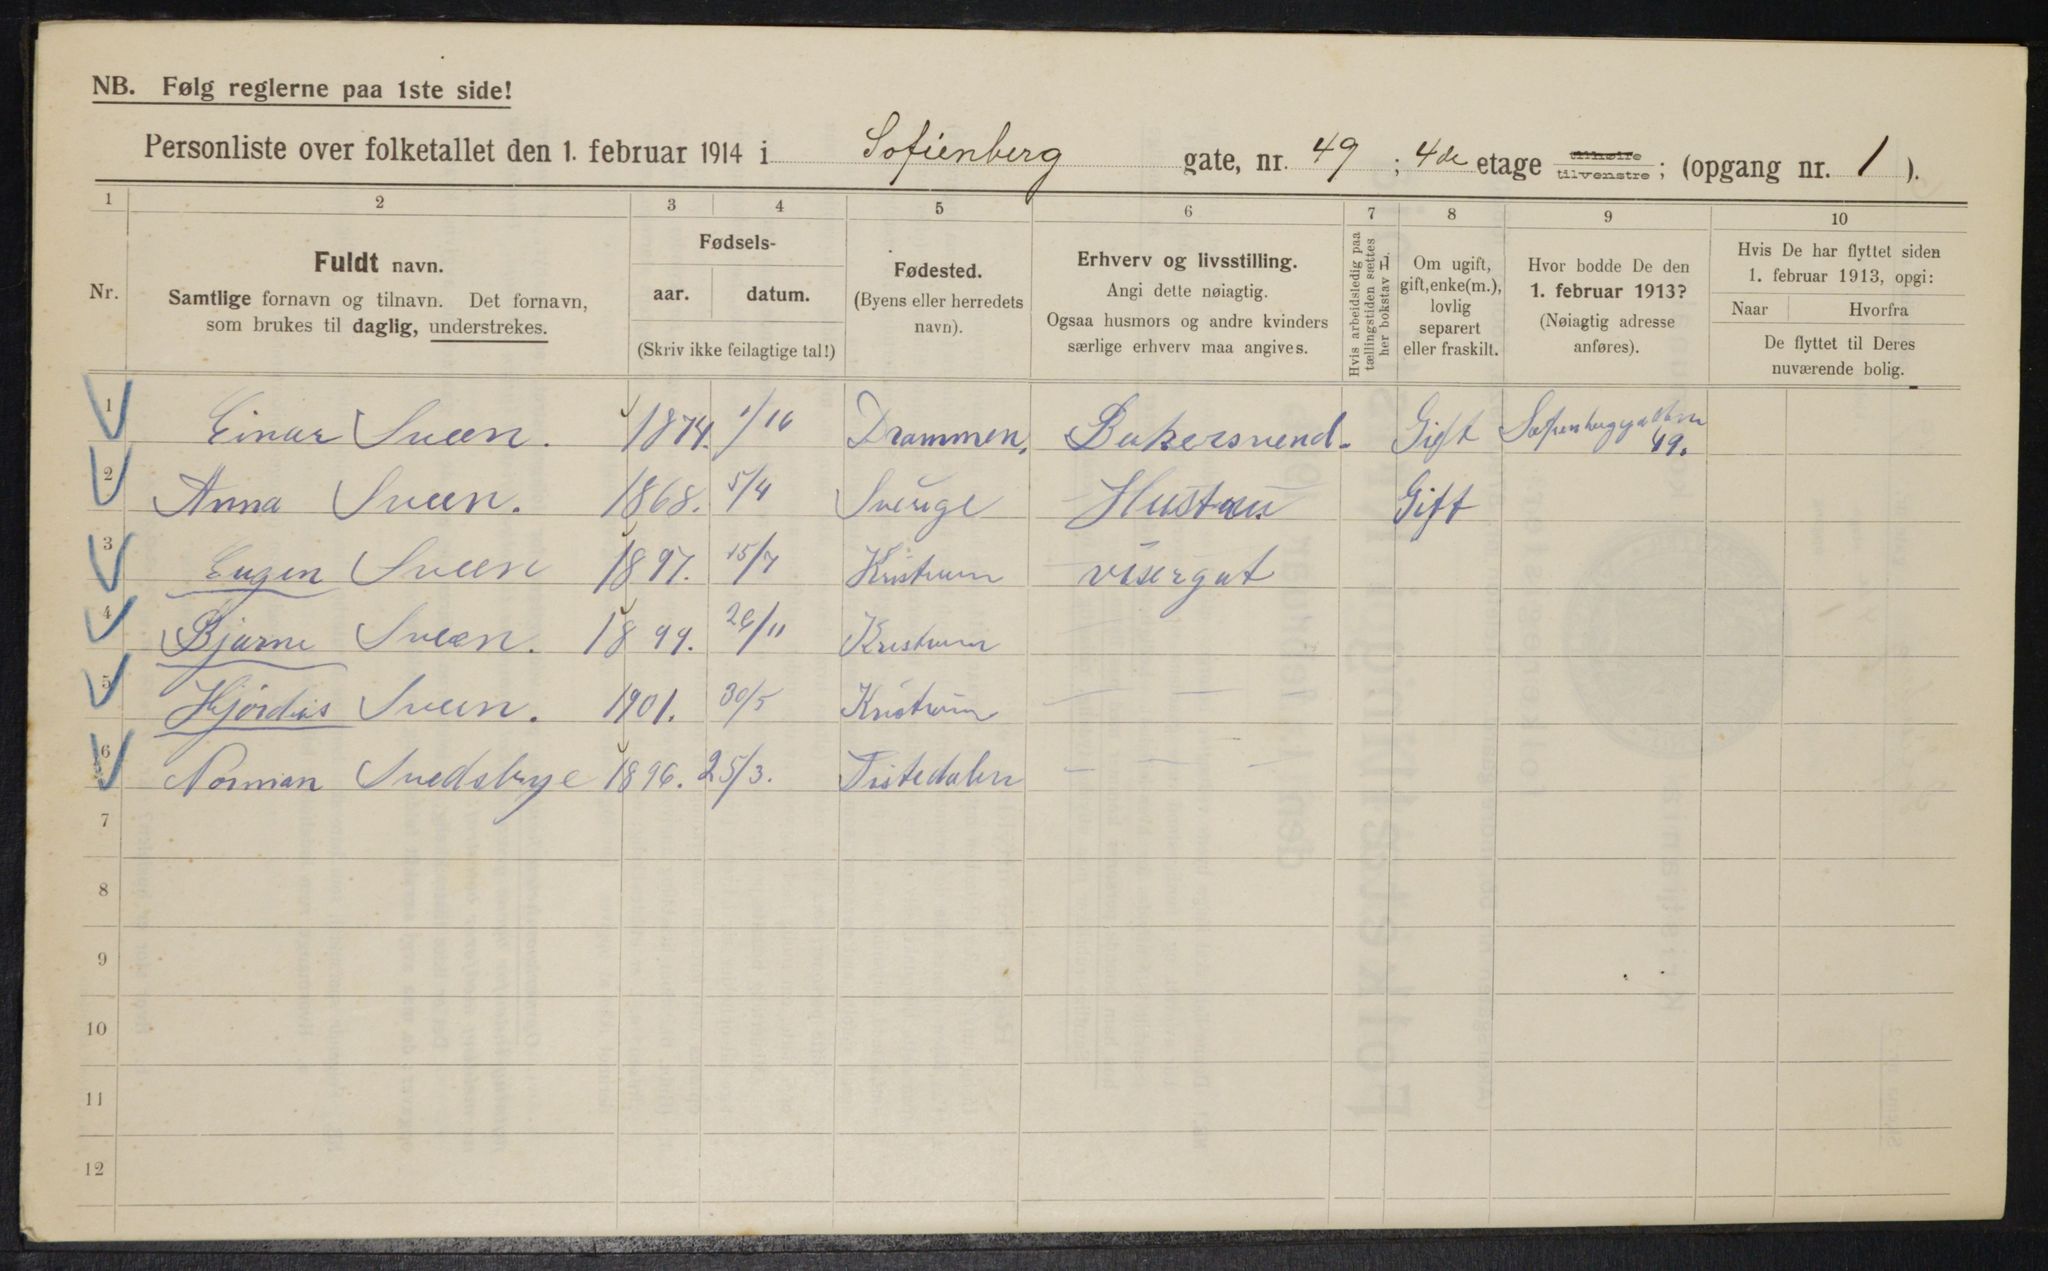 NB. Følg reglerne paa 1ste side!
Personliste over folketallet den 1. februar 1914 i Sofienberg gate, nr. 49 ; 4de etage tilhøire tilvenstre ; (opgang nr. 1 ).
1 2 3 4 5 6 7 8 9 10
Nr.
Fuldt navn.
Samtlige fornavn og tilnavn. Det fornavn,
som brukes til daglig, understrekes.
Fødsels-
aar. datum.
(Skriv ikke feilagtige tal!)
Fødested.
(Byens eller herredets
navn).
Erhverv og livsstilling.
Angi dette nøiagtig.
Ogsaa husmors og andre kvinders
særlige erhverv maa angives.
Hvis arbeidsledig paa
tællingstiden sættes
her bokstav H.
Om ugift,
gift, enke(m.),
lovlig
separert
eller fraskilt.
Hvor bodde De den
1. februar 1913?
(Nøiagtig adresse
anføres).
Hvis De har flyttet siden
1. februar 1913, opgi:
Naar Hvorfra
De flyttet til Deres
nuværende bolig.
1 Einar Sveen. 1874. 1/16 Drammen. Bakersvend. Gift
49.
2 Anna Sveen. 1868. 5/4 Sverige Gift
3 Eugen Sveen 1897. 15/7 visergut
4 Bjarne Sveen. 1899. 26/11
5 Hjørdis Sveen. 1901. 30/5
6 Norman Svedsbrye 1896. 25/3. Tistedalen
7
8
9
10
11
12